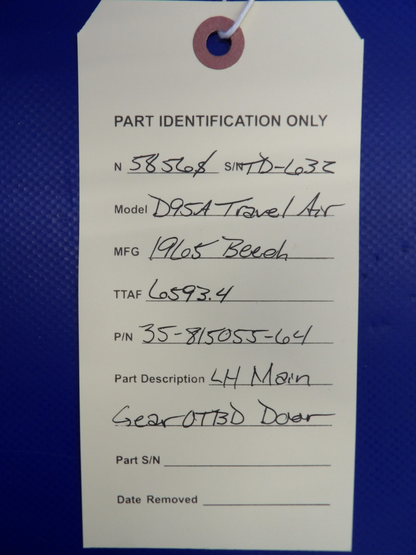 PART IDENTIFICATION ONLY
N 5856S S/N TD-632
Model D95A Travel Air
MFG 1965 Beech
TTAF 6593.4
P/N 35-815055-64
Part Description LH Main
Gear OTBD Door
Part S/N
Date Removed